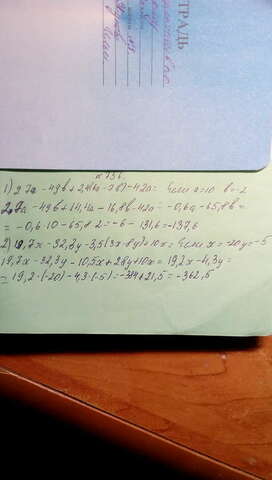 ТРАДЬ
№ 736.
1) 27a - 49b + 2,4(6a - 7b) - 42a = если a = 10 b = 2
27a - 49b + 14,4a - 16,8b - 42a = -0,6a - 65,8b =
= -0,6·10 - 65,8·2 = -6 - 131,6 = -137,6
2) 19,7x - 32,3y - 3,5(3x - 8y) + 10x = если x = -20 y = -5
19,7x - 32,3y - 10,5x + 28y + 10x = 19,2x - 4,3y =
= 19,2·(-20) - 4,3·(-5) = -384 + 21,5 = -362,5